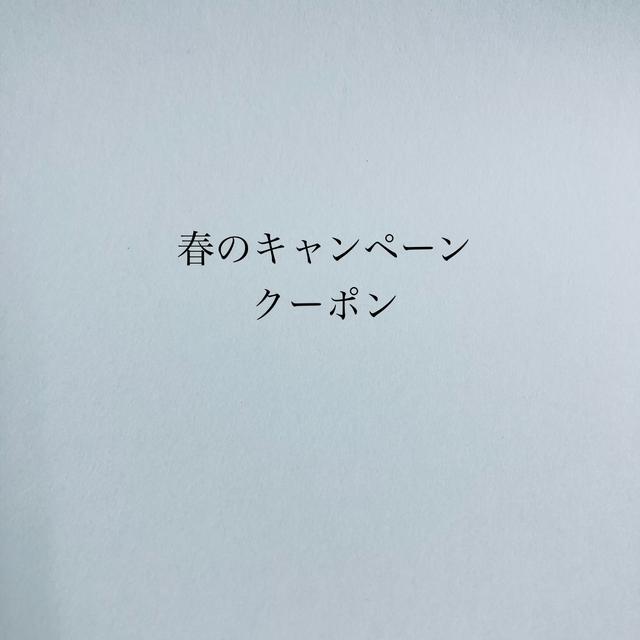 春のキャンペーン
クーポン